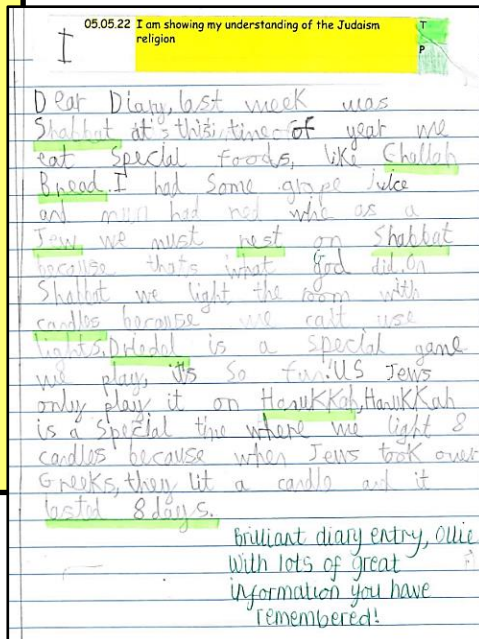 I
05.05.22 I am showing my understanding of the Judaism
religion
T
P
Dear Diary, last week was
Shabbat at this time of year we
eat special foods, like Challah
Bread. I had some grape juice
and mum had red as a
Jew we must rest on Shabbat
because thats what god did. On
Shabbat we light the room with
candles because we can't use
lights. Driedal is a special game
we play, its so fun! US Jews
only play it on Hanukkah, Hanukkah
is a special time where we light 8
candles because when Jews took over
Greeks, they lit a candle and it
lasted 8 days.
Brilliant diary entry, Ollie
with lots of great
information you have
remembered!